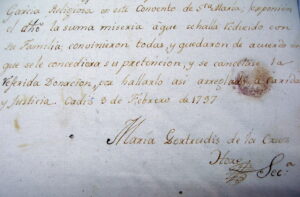 Garcia Religiosa en este Convento de S.ta Maria, exponien
el dho la suma miseria a que se halla reducido con
su familia convinieron todas y quedaron de acuerdo en
que se le concediera su pretencion, y se cancelase la
referida Donacion, por hallarlo asi arreglado a carida
y Justicia. Cadis 3 de Febrero de 1737
Maria Gertrudis de la Cruz
Sec.a